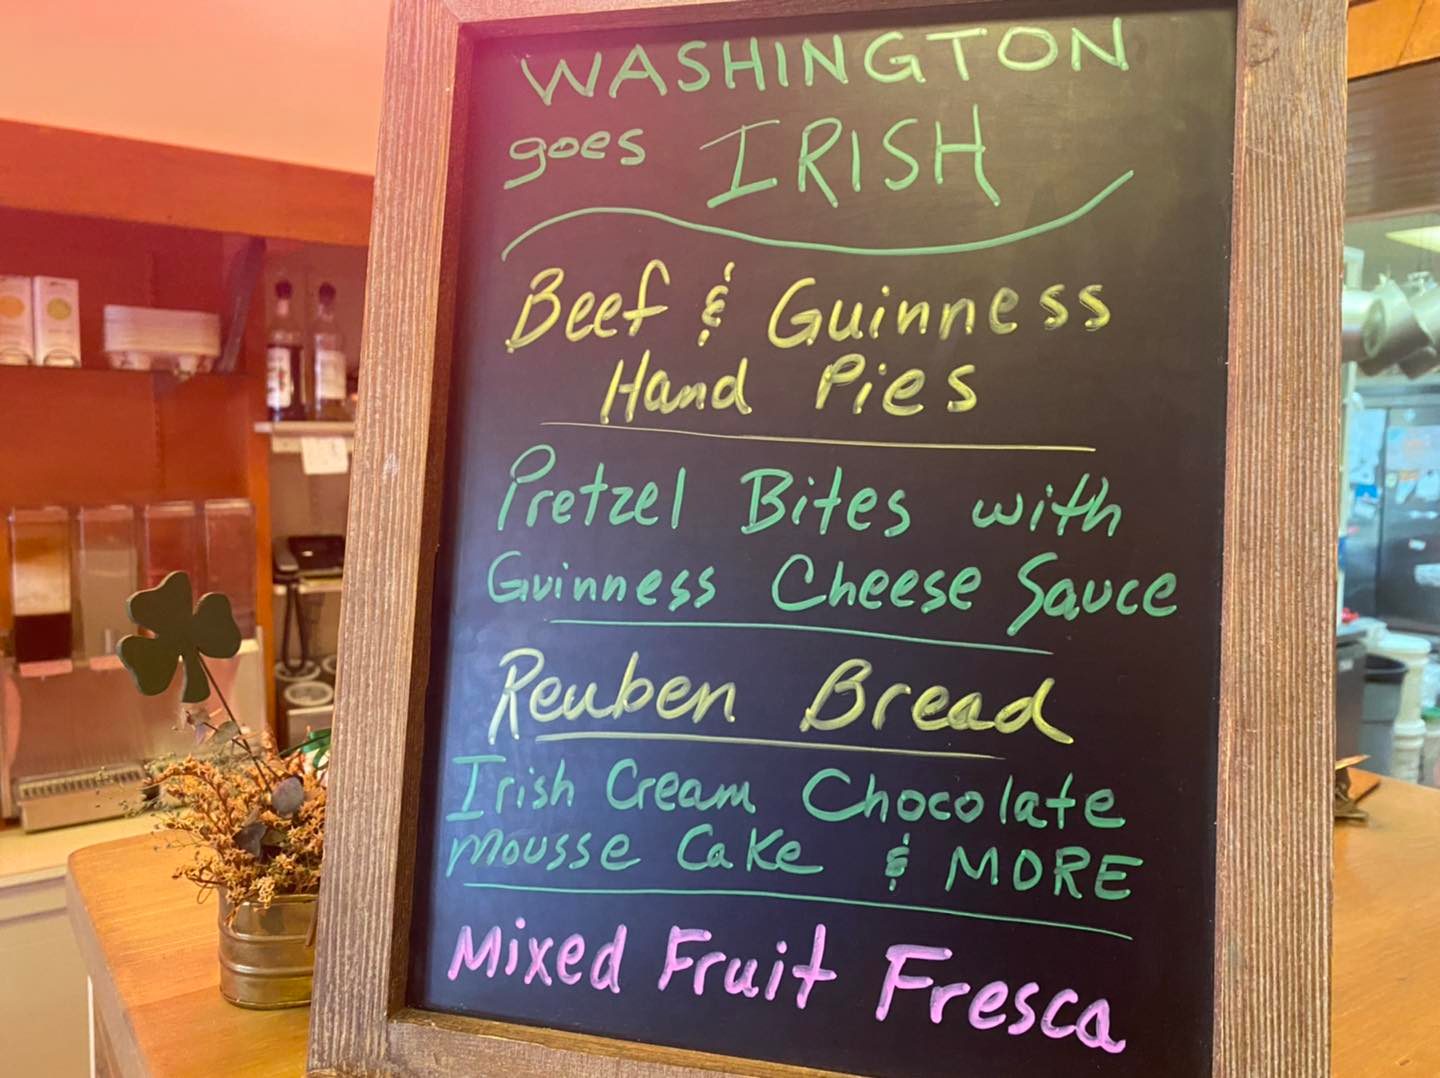 WASHINGTON
goes IRISH
Beef & Guinness
Hand Pies
Pretzel Bites with
Guinness Cheese Sauce
Reuben Bread
Irish Cream Chocolate
Mousse Cake & MORE
Mixed Fruit Fresca